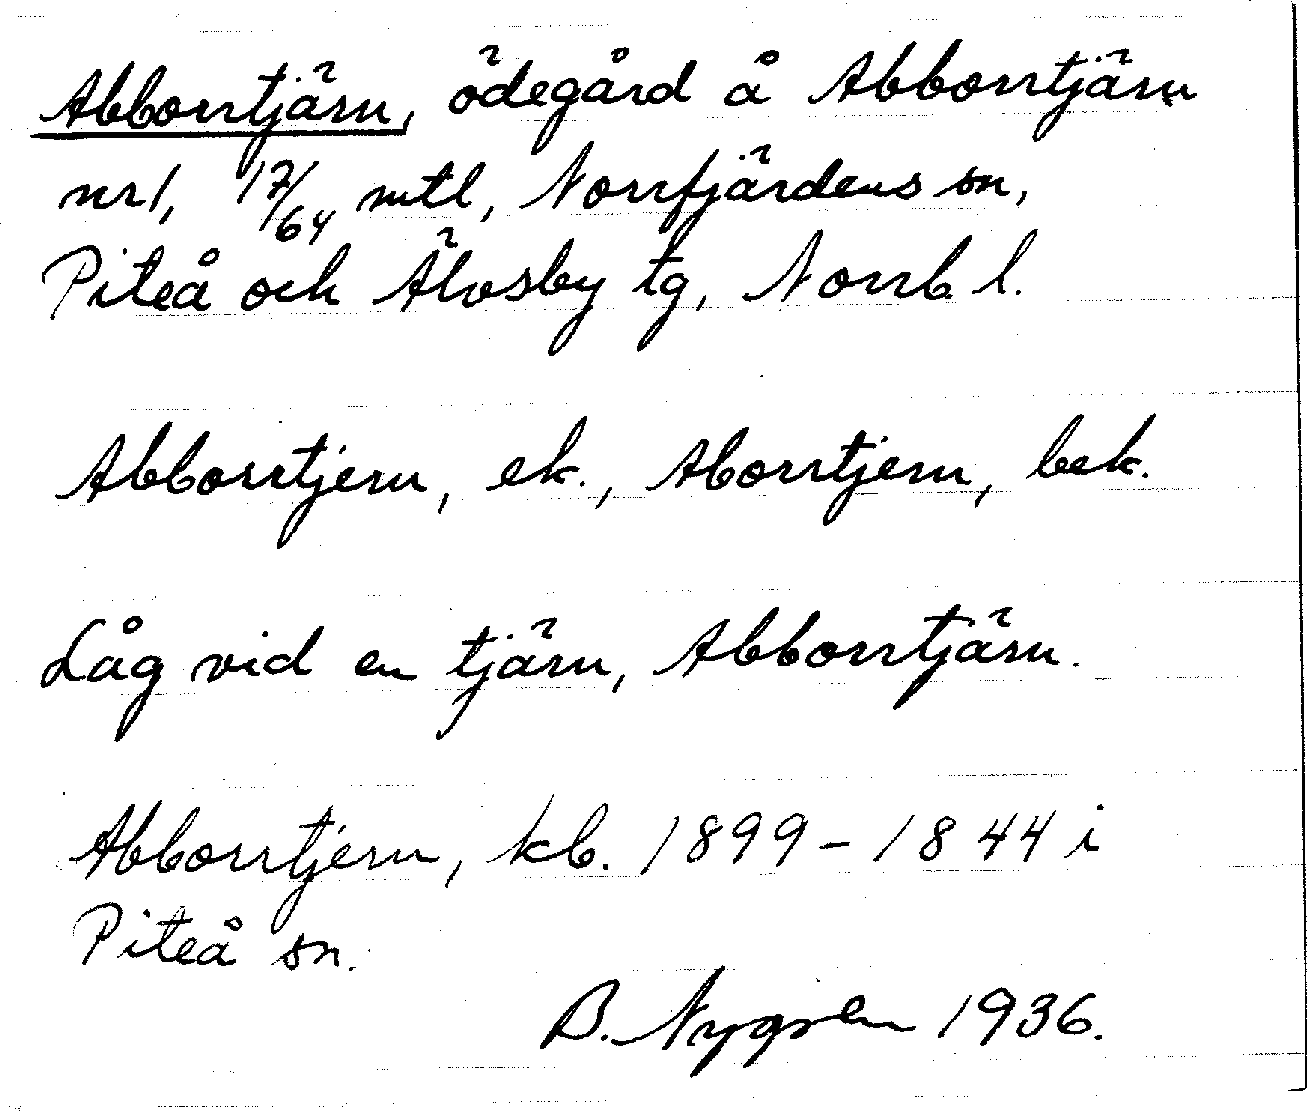 Abborrtjärn, ödegård å Abborrtjärn
nr 1, 17/64 mtl, Norrfjärdens sn,
Piteå och Älvsby tg, Norrb l.
Abborrtjern, ek., Aborrtjern, bek.
Låg vid en tjärn, Abborrtjärn.
Abborrtjern, kb. 1899-1844 i
Piteå sn.
B. Nygren 1936.